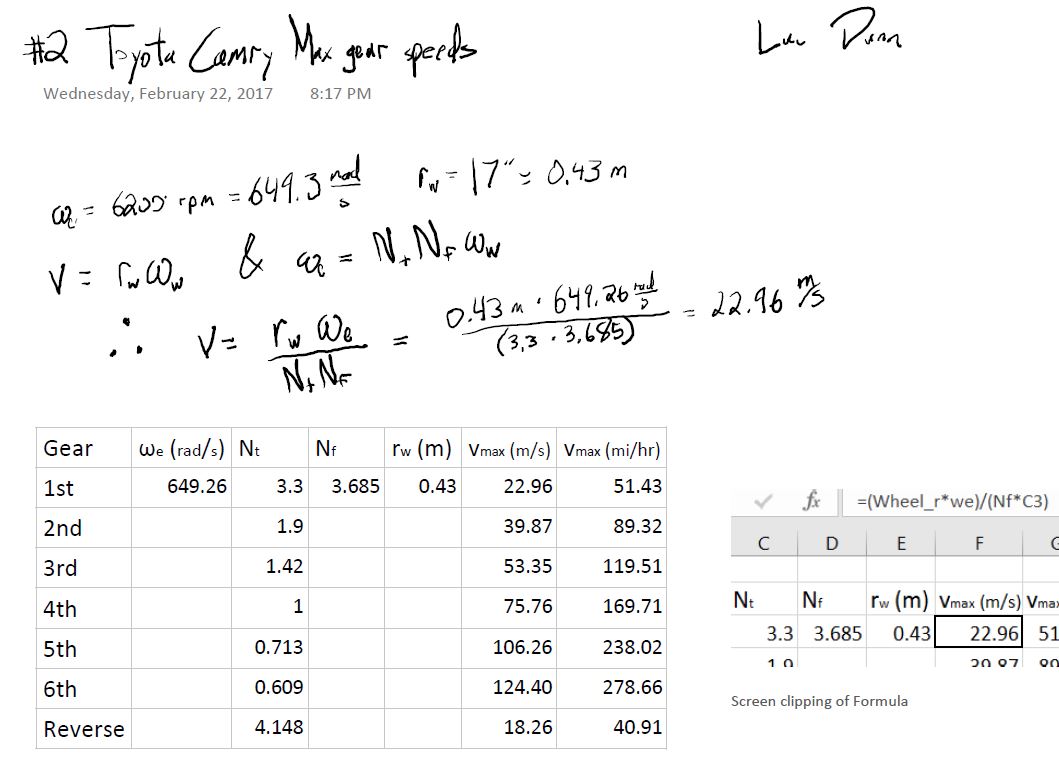 #2 Toyota Camry Max gear speeds
Wednesday, February 22, 2017 8:17 PM
ωe = 6200 rpm = 649.3 rad/s rw = 17" ≈ 0.43 m
V = rw ωw & ωe = Nt NF ωw
∴ V = rw ωe / Nt NF = 0.43 m · 649.26 rad/s / (3.3 · 3.685) = 22.96 m/s
Gear ωe (rad/s) Nt Nf rw (m) Vmax (m/s) Vmax (mi/hr)
1st 649.26 3.3 3.685 0.43 22.96 51.43
2nd 1.9 39.87 89.32
3rd 1.42 53.35 119.51
4th 1 75.76 169.71
5th 0.713 106.26 238.02
6th 0.609 124.40 278.66
Reverse 4.148 18.26 40.91
fx =(Wheel_r*we)/(Nf*C3)
C D E F
Nt Nf rw (m) Vmax (m/s) Vmax
3.3 3.685 0.43 22.96 51
1.9 39.87 89
Screen clipping of Formula